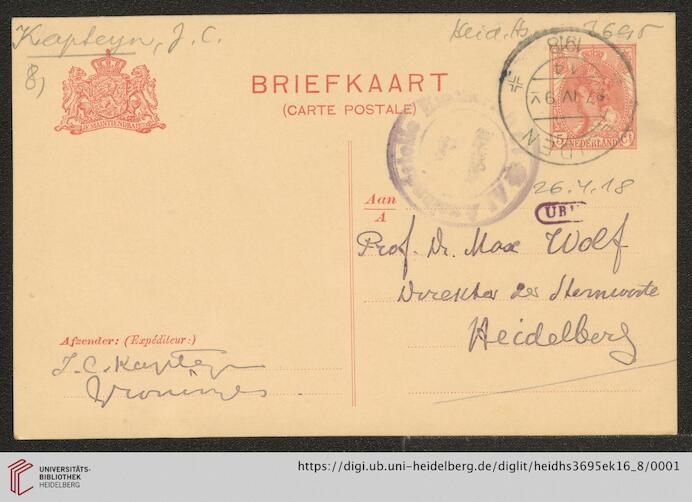 Kapteyn, J. C.
Heid. Hs. 3695
8)
JE MAINTIENDRAI
BRIEFKAART
(CARTE POSTALE)
1918
NEDERLAND
26.4.18
UB
Aan
A
Prof. Dr. Max Wolf
Direktor der Sternwarte
Heidelberg
Afzender: (Expéditeur:)
J. C. Kapteyn
Groningen
UNIVERSITÄTS-
BIBLIOTHEK
HEIDELBERG
https://digi.ub.uni-heidelberg.de/diglit/heidhs3695ek16_8/0001